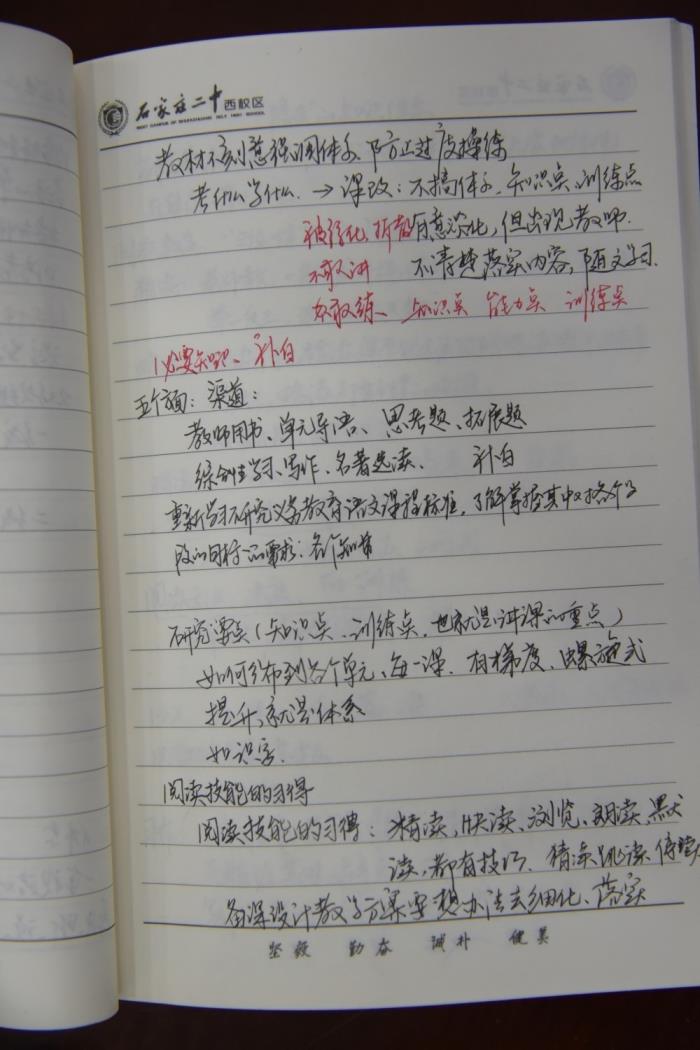 石家庄二中西校区
WEST CAMPUS OF SHIJIAZHUANG NO.2 HIGH SCHOOL
教材不刻意强调体系 防止过度操练
考什么学什么 → 课改：不搞体系、知识点、训练点
被淡化、拆散 有意淡化，但出现教师
不敢讲 不清楚落实内容，随文学习
不敢练、知识点 能力点 训练点
必要知识、补白
五个方面：渠道：
教师用书、单元导语、思考题、拓展题
综合性学习、写作、名著选读、 补白
重新学习研究义务教育语文课程标准，了解掌握其中对各个学
段的目标的要求：各个知
研究要点（知识点、训练点，也就是讲课的重点）
如何分布到各个单元、每一课．有梯度、螺旋式
提升，就是体系
如识字
阅读技能的习得
阅读技能的习得：精读，快读、浏览、朗读、默
读，都有技巧．猜读 跳读
备课设计教学方案要想办法去细化、落实
坚毅 勤奋 诚朴 健美